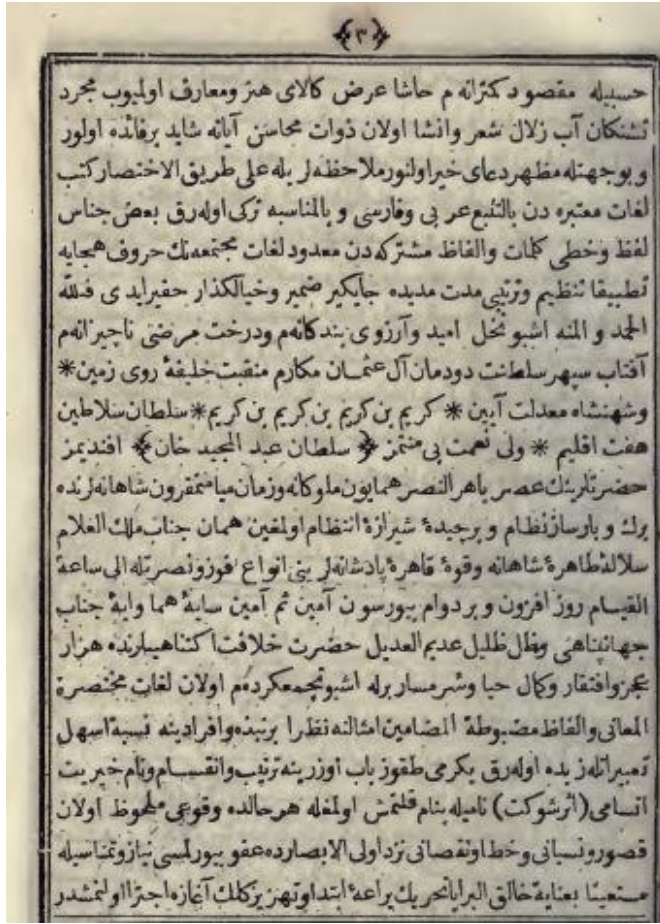 ﴿٣﴾
حسبیله مقصود کمترانه م حاشا عرض کالای هنر ومعارف اولمیوب مجرد
تشنکان آب زلال شعر وانشا اولان ذوات محاسن آیاته شاید برفائده اولور
وبوجهتله مظهر دعای خیر اولنور ملاحظه لریله علی طریق الاختصار کتب
لغات معتبره دن بالتتبع عربی وفارسی و بالمناسبه ترکی اوله رق بعض جناس
لفظ وخطی کلمات والفاظ مشترکه دن معدود لغات مجتمعه نك حروف هجایه
تطبیقا تنظیم وترتیبی مدت مدیده جایکیر ضمیر وخیالکذار حقیر ایدی فلله
الحمد و المنه اشبو نخل امید وآرزوی بندکانه م ودرخت مرضیٔ ناچیزانه م
آفتاب سپهر سلطنت دودمان آل عثمان مکارم منقبت خلیفهٔ روی زمین *
وشهنشاه معدلت آیین * کریم بن کریم بن کریم بن کریم * سلطان سلاطین
هفت اقلیم * ولی نعمت بی منتمز ﴿ سلطان عبد المجید خان ﴾ افندیمز
حضرتلرینك عصر باهر النصر همایون ملوکانه وزمان میامنمقرون شاهانه لرنده
برك و بارساز نظام و برچیدهٔ شیرازهٔ انتظام اولمغین همان جناب ملك العلام
سلالهٔ طاهرهٔ شاهانه وقوهٔ قاهرهٔ پادشانه لرینی انواع فوز ونصرتله الی ساعة
القیام روز افزون و بردوام بیورسون آمین ثم آمین سایهٔ هما وایهٔ جناب
جهانپناهی وظل ظلیل عدیم العدیل حضرت خلافت اکتناهیلرنده هزار
عجز وافتقار وکمال حیا وشرمسار برله اشبو تجمعکرده م اولان لغات مختصرة
المعانی والفاظ مضبوطة المضامین امثالنه نظرا برنبذه وافرادینه نسبة اسهل
تعبیراتله زیده اوله رق یکرمی طقوز باب اوزرینه ترتیب وانقسام ونام خیریت
اتسامی (اثر شوکت) نامیله بنام قلنمش اولمغله هر حالده وقوعی ملحوظ اولان
قصور ونسیانی وخطا ونقصانی نزد اولی الابصارده عفو بیورلمسی نیاز وتمناسیله
مستعینا بعنایة خالق البرایا تحریك یراعهٔ ابتدا وتهزیز کلك آغازه اجترا اولنمشدر